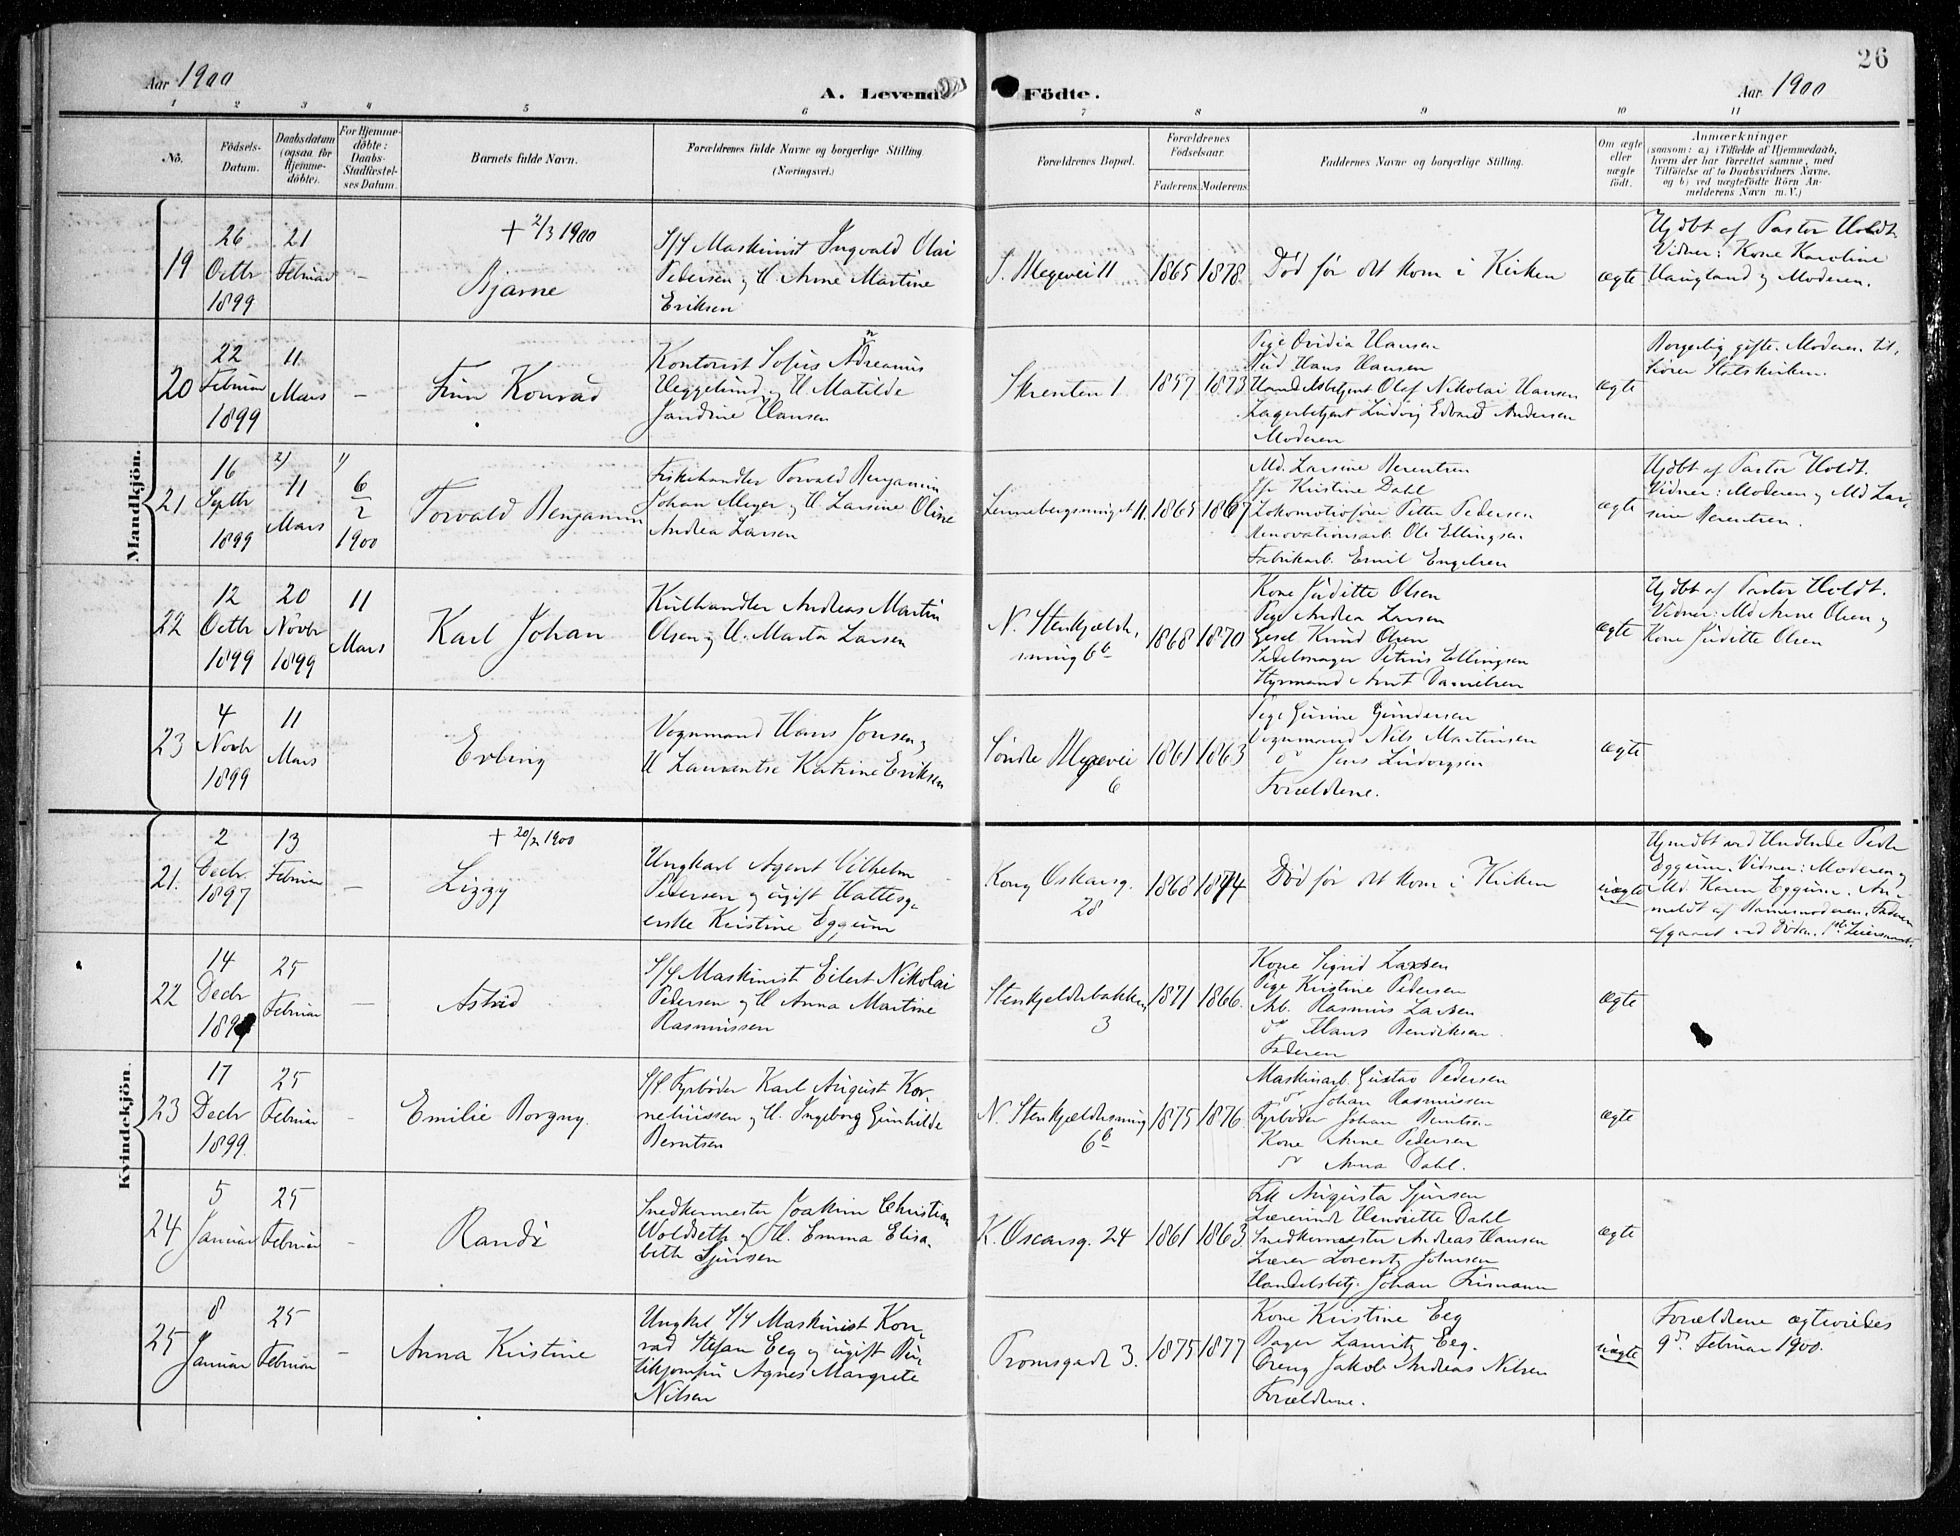 26
Aar 1900
A. Levende Födte.
Aar 1900
1 2 3 4 5 6 7 8 9 10 11
No.
Födsels-
Datum.
Daabsdatum
(ogsaa for
Hjemme-
döbte).
For Hjemme-
döbte:
Daabs-
Stadfæstel-
ses Datum.
Barnets fulde Navn.
Forældrenes fulde Navne og borgerlige Stilling.
(Næringsvei.)
Forældrenes Bopæl.
Forældrenes
Födselsaar.
Faderens. Moderens.
Faddernes Navne og borgerlige Stilling.
Om ægte
eller
uægte
födt.
Anmærkninger
(saasom: a) i Tilfælde af Hjemmedaab,
hvem der har forrettet samme, med
Tilföielse af to Daabsvidners Navne,
og b) ved uægtefödte Börn An-
melderens Navn m. V.)
Mandkjön.
19
26
Octbr
1899
21
Februar
-
+ 2/3 1900
Bjarne
S/S Maskinist Ingvald Olai
Pedersen og H. Anne Martine
Eriksen
S. Allegevei 11
1865
1878
Död før det kom i Kirken
ægte
Hjdbt af Pastor Holdt.
Vidner: Kone Karoline
Haugland og Moderen.
20
22
Februar
1899
11
Mars
-
Finn Konrad
Kontorist Sofus Andreanus
Heggelund og H. Matilde
Jandrine Hansen
Skrenten 1
1857
1873
Pige Ovidia Hansen
Hans Hansen
Handelsbetjent Olaf Nikolai Hansen
Lagerbetjent Ludvig Edvard Andersen
Moderen
ægte
Borgerlig gifte. Moderen til-
hörer Statskirken.
21
16
Septbr
1899
2)
11
Mars
1)
6
2
1900
Torvald Benjamin
Fiskehandler Torvald Benjamin
Johan Meyer og H. Larsine Oline
Andrea Larsen
11.
1865
1867
Md. Larsine Berentsen
Kristine Dahl
Lokomotivfører Petter Pedersen
Renovationsarb. Ole Ellingsen
Fabrikarb. Emil Engelsen
ægte
Hjdbt af Pastor Holdt.
Vidner: Moderen og Md Lar-
sine Berentsen.
22
12
Octbr
1899
20
Novbr
1899
11
Mars
Karl Johan
Kulhandler Andreas Martin
Olsen og H. Marta Larsen
N. Stenkjelds-
smug 6b
1868
1870
Kone Juditte Olsen
Pige Andrea Larsen
Gesel Knud Olsen
Sadelmager Petrus Ellingsen
Styrmand Arnt Danielsen
ægte
Hjdbt af Pastor Holdt.
Vidner: Md Anne Olsen og
Kone Juditte Olsen
23
4
Novbr
1899
11
Mars
Erling
Vognmand Hans Jonsen og
H Laurentse Katrine Eriksen
Søndre Allegevei
6
1861
1863
Pige Gurine Gundersen
Vognmand Nils Martinsen
do Jens Ludvigsen
Forældrene.
ægte
Kvindekjön.
21.
2
Decbr.
1897
13
Februar
-
+ 20/2 1900
Lizzy
Ungkarl Agent Vilhelm
Pedersen og ugift Hattesy-
erske Kristine Eggum
Kong Oskarsg.
28
1868
1874
Död før det kom i Kirken
uægte
Hjmdbt ved Peder
Eggum. Vidner: Moderen og
Md. Karen Eggum. An-
meldt af Barnemoderen. Faderen
22
14
Decbr
1899
25
Februar
-
Astrid
S/S Maskinist Eilert Nikolai
Pedersen og H Anna Martine
Rasmussen
Stenkjeldebakken
3
1871
1866.
Kone Sigrid Larsen
Pige Kristine Pedersen
Arb. Rasmus Larsen
do Hans Bendiksen.
Faderen
ægte
23
17
Decbr
1899.
25
Februar
-
Emilie Borgny.
S/S. Fyrböder Karl August Kor-
neliussen og H. Ingeborg Gunhilde
Berntsen
N. Stenkjeldersmug
6b
1875
1876.
Maskinarb. Gustav Pedersen
do Johan Rasmussen
Fyrböder Johan Berntsen
Kone Anne Pedersen
do Anna Dahl.
ægte
24
5
Januar
25
Februar
-
Randi
Snedkermester Joakim Christian
Woldseth og H. Emma Elisa-
beth Sjursen
K. Oscarsg. 24
1861
1863.
Frk Augusta Sjursen
Lærerinde Henriette Dahl
Snedkermester Andreas Hansen
Lærer Lorentz Johnsen
Handelsbetj. Johan Frimann
ægte
25
8
Januar
25
Februar
-
Anna Kristine
Ungkal S/S Maskinist Kon-
rad Stefan Eeg og ugift Bu-
tikjomfru Agnes Margrete
Nilsen
Tromsgade 3.
1875
1877
Kone Kristine Eeg
Bager Lauritz Eeg.
Jakob Andreas Nilsen
Forældrene.
uægte
Forældrene ægteviedes
9de Februar 1900.